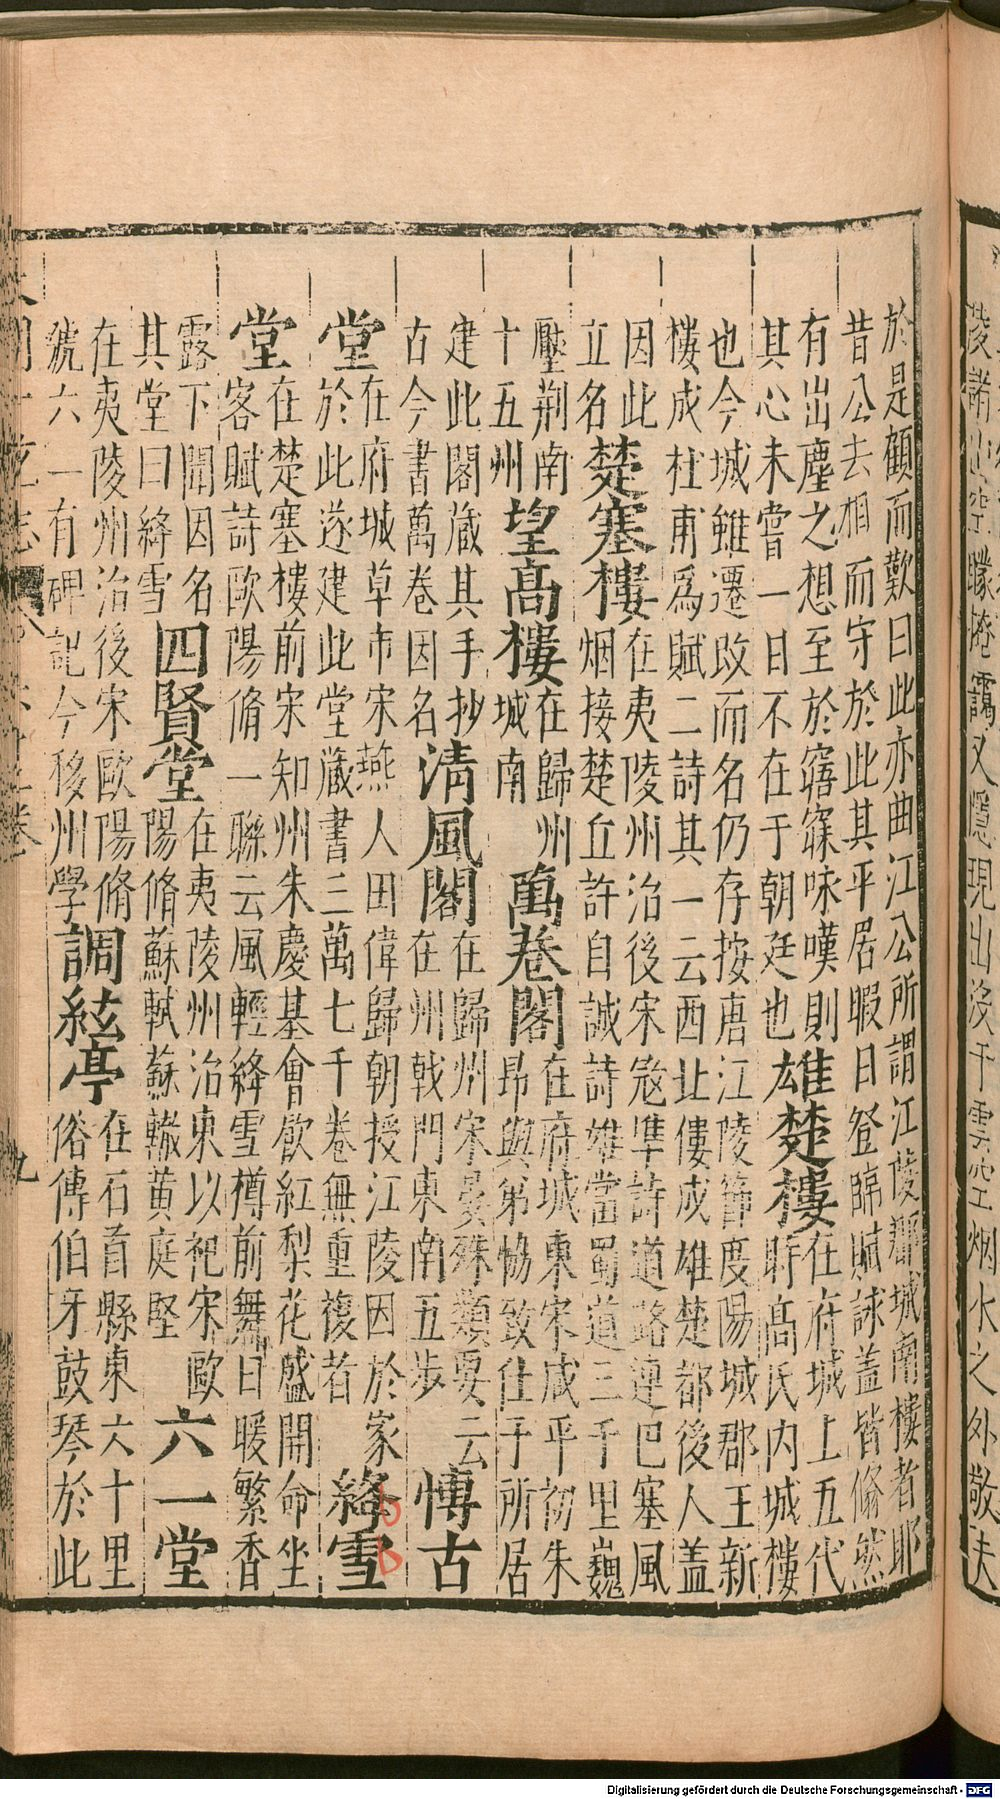 陵諸山空曚晻靄又隱現出没于雲空烟水之外敬夫
於是顧而歎曰此亦曲江公所謂江陵郡城南樓者耶
昔公去相而守於此其平居暇日登臨賦詠蓋皆翛然
有出塵之想至於寤寐咏嘆則
其心未嘗一日不在于朝廷也
雄楚樓
在府城上五代
時高氏内城樓
也今城雖遷改而名仍存按唐江陵節度陽城郡王新
樓成杜甫爲賦二詩其一云西北樓成雄楚都後人蓋
因此
立名
楚塞樓
在夷陵州治後宋寇準詩道路連巴塞風
烟接楚丘許自誠詩雄當蜀道三千里巍
壓荆南
十五州
望高樓
在歸州
城南
萬卷閣
在府城東宋咸平初朱
昂與弟協致仕于所居
建此閣蔵其手抄
古今書萬卷因名
清風閣
在歸州宋晏殊類要云
在州戟門東南五步
博古
堂
在府城草市宋燕人田偉歸朝授江陵因於家
於此遂建此堂蔵書三萬七千卷無重複者
絳雪
堂
在楚塞樓前宋知州朱慶基會飲紅梨花盛開命坐
客賦詩歐陽脩一聯云風輕絳雪樽前舞日暖繁香
露下聞因名
其堂曰絳雪
四賢堂
在夷陵州治東以祀宋歐
陽脩蘇軾蘇轍黄庭堅
六一堂
在夷陵州治後宋歐陽脩
號六一有碑記今移州學
調絃亭
在石首縣東六十里
俗傳伯牙鼓琴於此
九
Digitalisierung gefördert durch die Deutsche Forschungsgemeinschaft - DFG